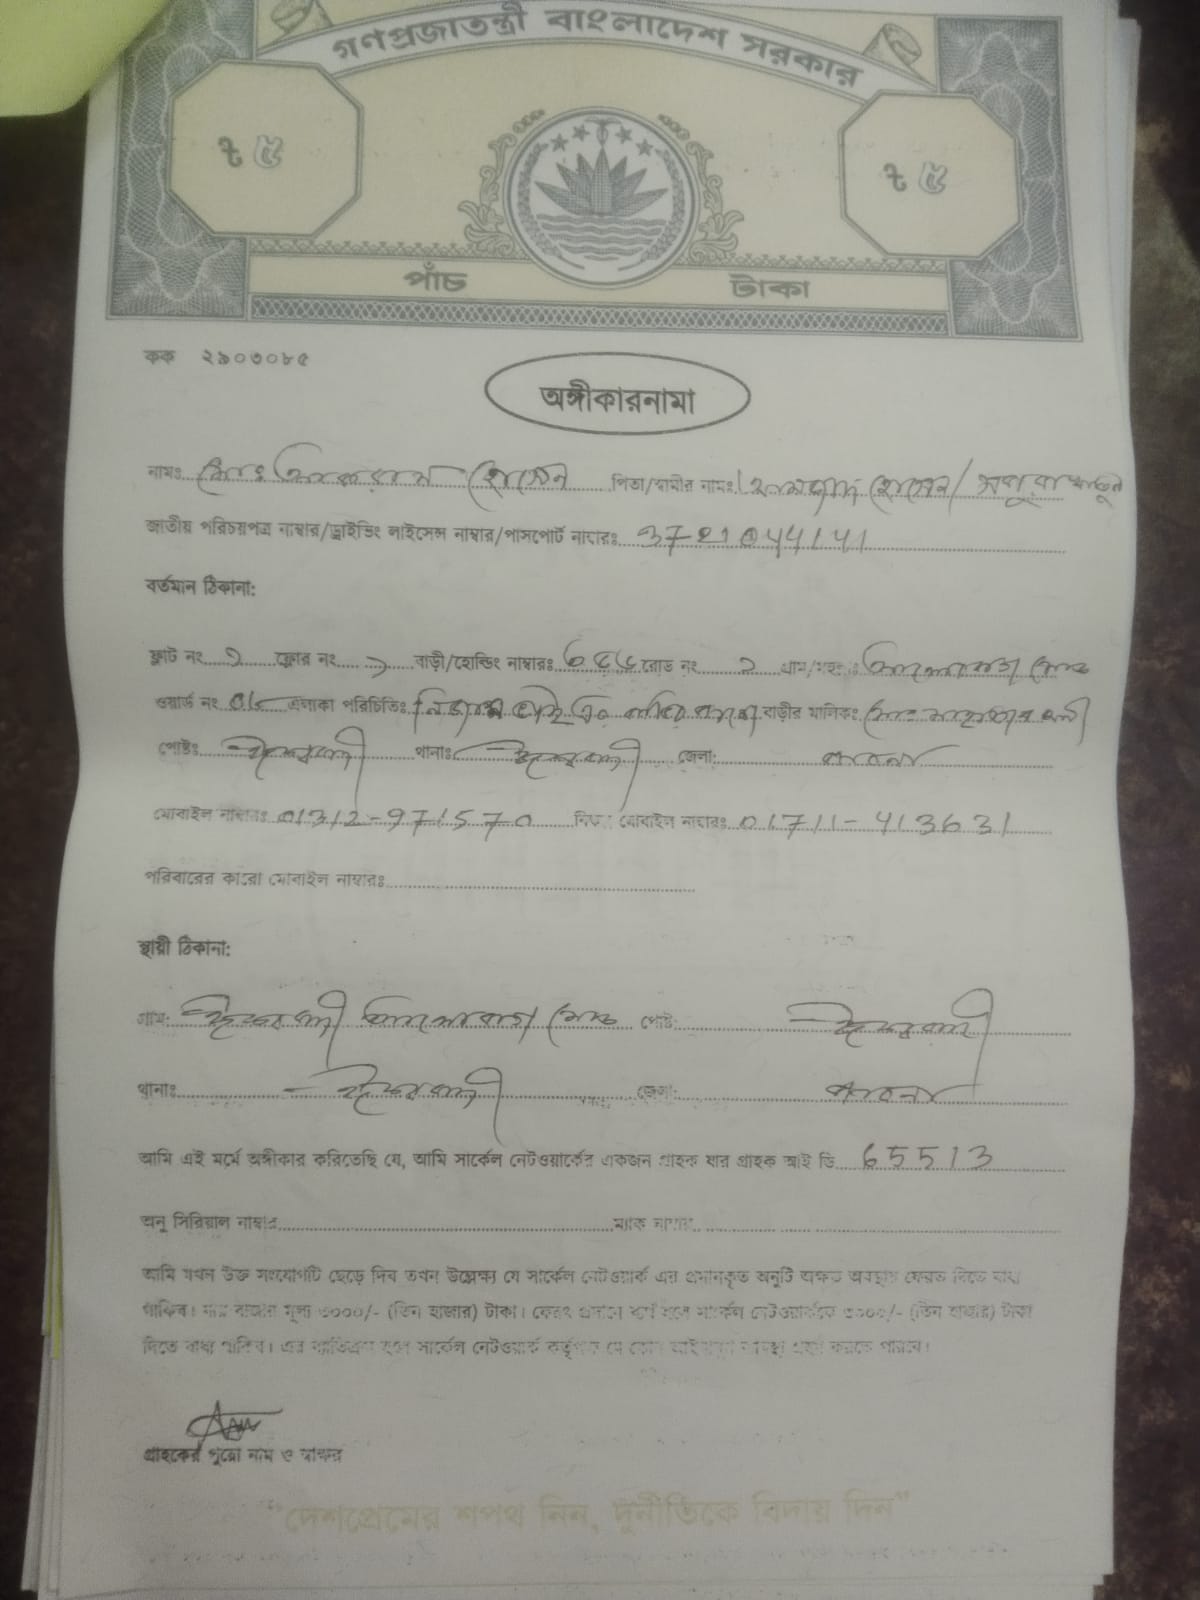 গণপ্রজাতন্ত্রী বাংলাদেশ সরকার
৳ ৫ ৳ ৫
পাঁচ টাকা
কক ২৯০৩০৮৫
অঙ্গীকারনামা
নামঃ মোঃ আকরাম হোসেন পিতা/স্বামীর নামঃ হোসেন/
জাতীয় পরিচয়পত্র নাম্বার/ড্রাইভিং লাইসেন্স নাম্বার/পাসপোর্ট নাম্বারঃ 3721044141
বর্তমান ঠিকানা:
ফ্লাট নং ১ ফ্লোর নং ১ বাড়ী/হোল্ডিং নাম্বারঃ রোড নং গ্রাম/মহল্লাঃ
ওয়ার্ড নং এলাকা পরিচিতিঃ বাড়ীর মালিকঃ মোঃ
পোষ্টঃ ঈশ্বরদী থানাঃ ঈশ্বরদী জেলা: পাবনা
মোবাইল নাম্বারঃ 01312-971570 মোবাইল নাম্বারঃ 01711-413631
পরিবারের কারো মোবাইল নাম্বারঃ
স্থায়ী ঠিকানা:
গ্রাম: ঈশ্বরদী পোষ্ট: ঈশ্বরদী
থানাঃ ঈশ্বরদী জেলা: পাবনা
আমি এই মর্মে অঙ্গীকার করিতেছি যে, আমি সার্কেল নেটওয়ার্কের একজন গ্রাহক যার গ্রাহক আই ডি 65513
অনু সিরিয়াল নাম্বার ম্যাক নাম্বার
আমি যখন উক্ত সংযোগটি ছেড়ে দিব তখন উল্লেখ্য যে সার্কেল নেটওয়ার্ক এর প্রদানকৃত অনুটি অক্ষত অবস্থায় ফেরত দিতে বাধ্য
থাকিব। যার বাজার মূল্য ৩০০০/- (তিন হাজার) টাকা। ফেরৎ প্রদানে ব্যর্থ হলে সার্কেল নেটওয়ার্ককে ৩০০০/- (তিন হাজার) টাকা
দিতে বাধ্য থাকিব। এর ব্যতিক্রম হলে সার্কেল নেটওয়ার্ক কর্তৃপক্ষ যে কোন আইনানুগ ব্যবস্থা গ্রহণ করতে পারবে।
গ্রাহকের পুরো নাম ও স্বাক্ষর
“দেশপ্রেমের শপথ নিন, দুর্নীতিকে বিদায় দিন”